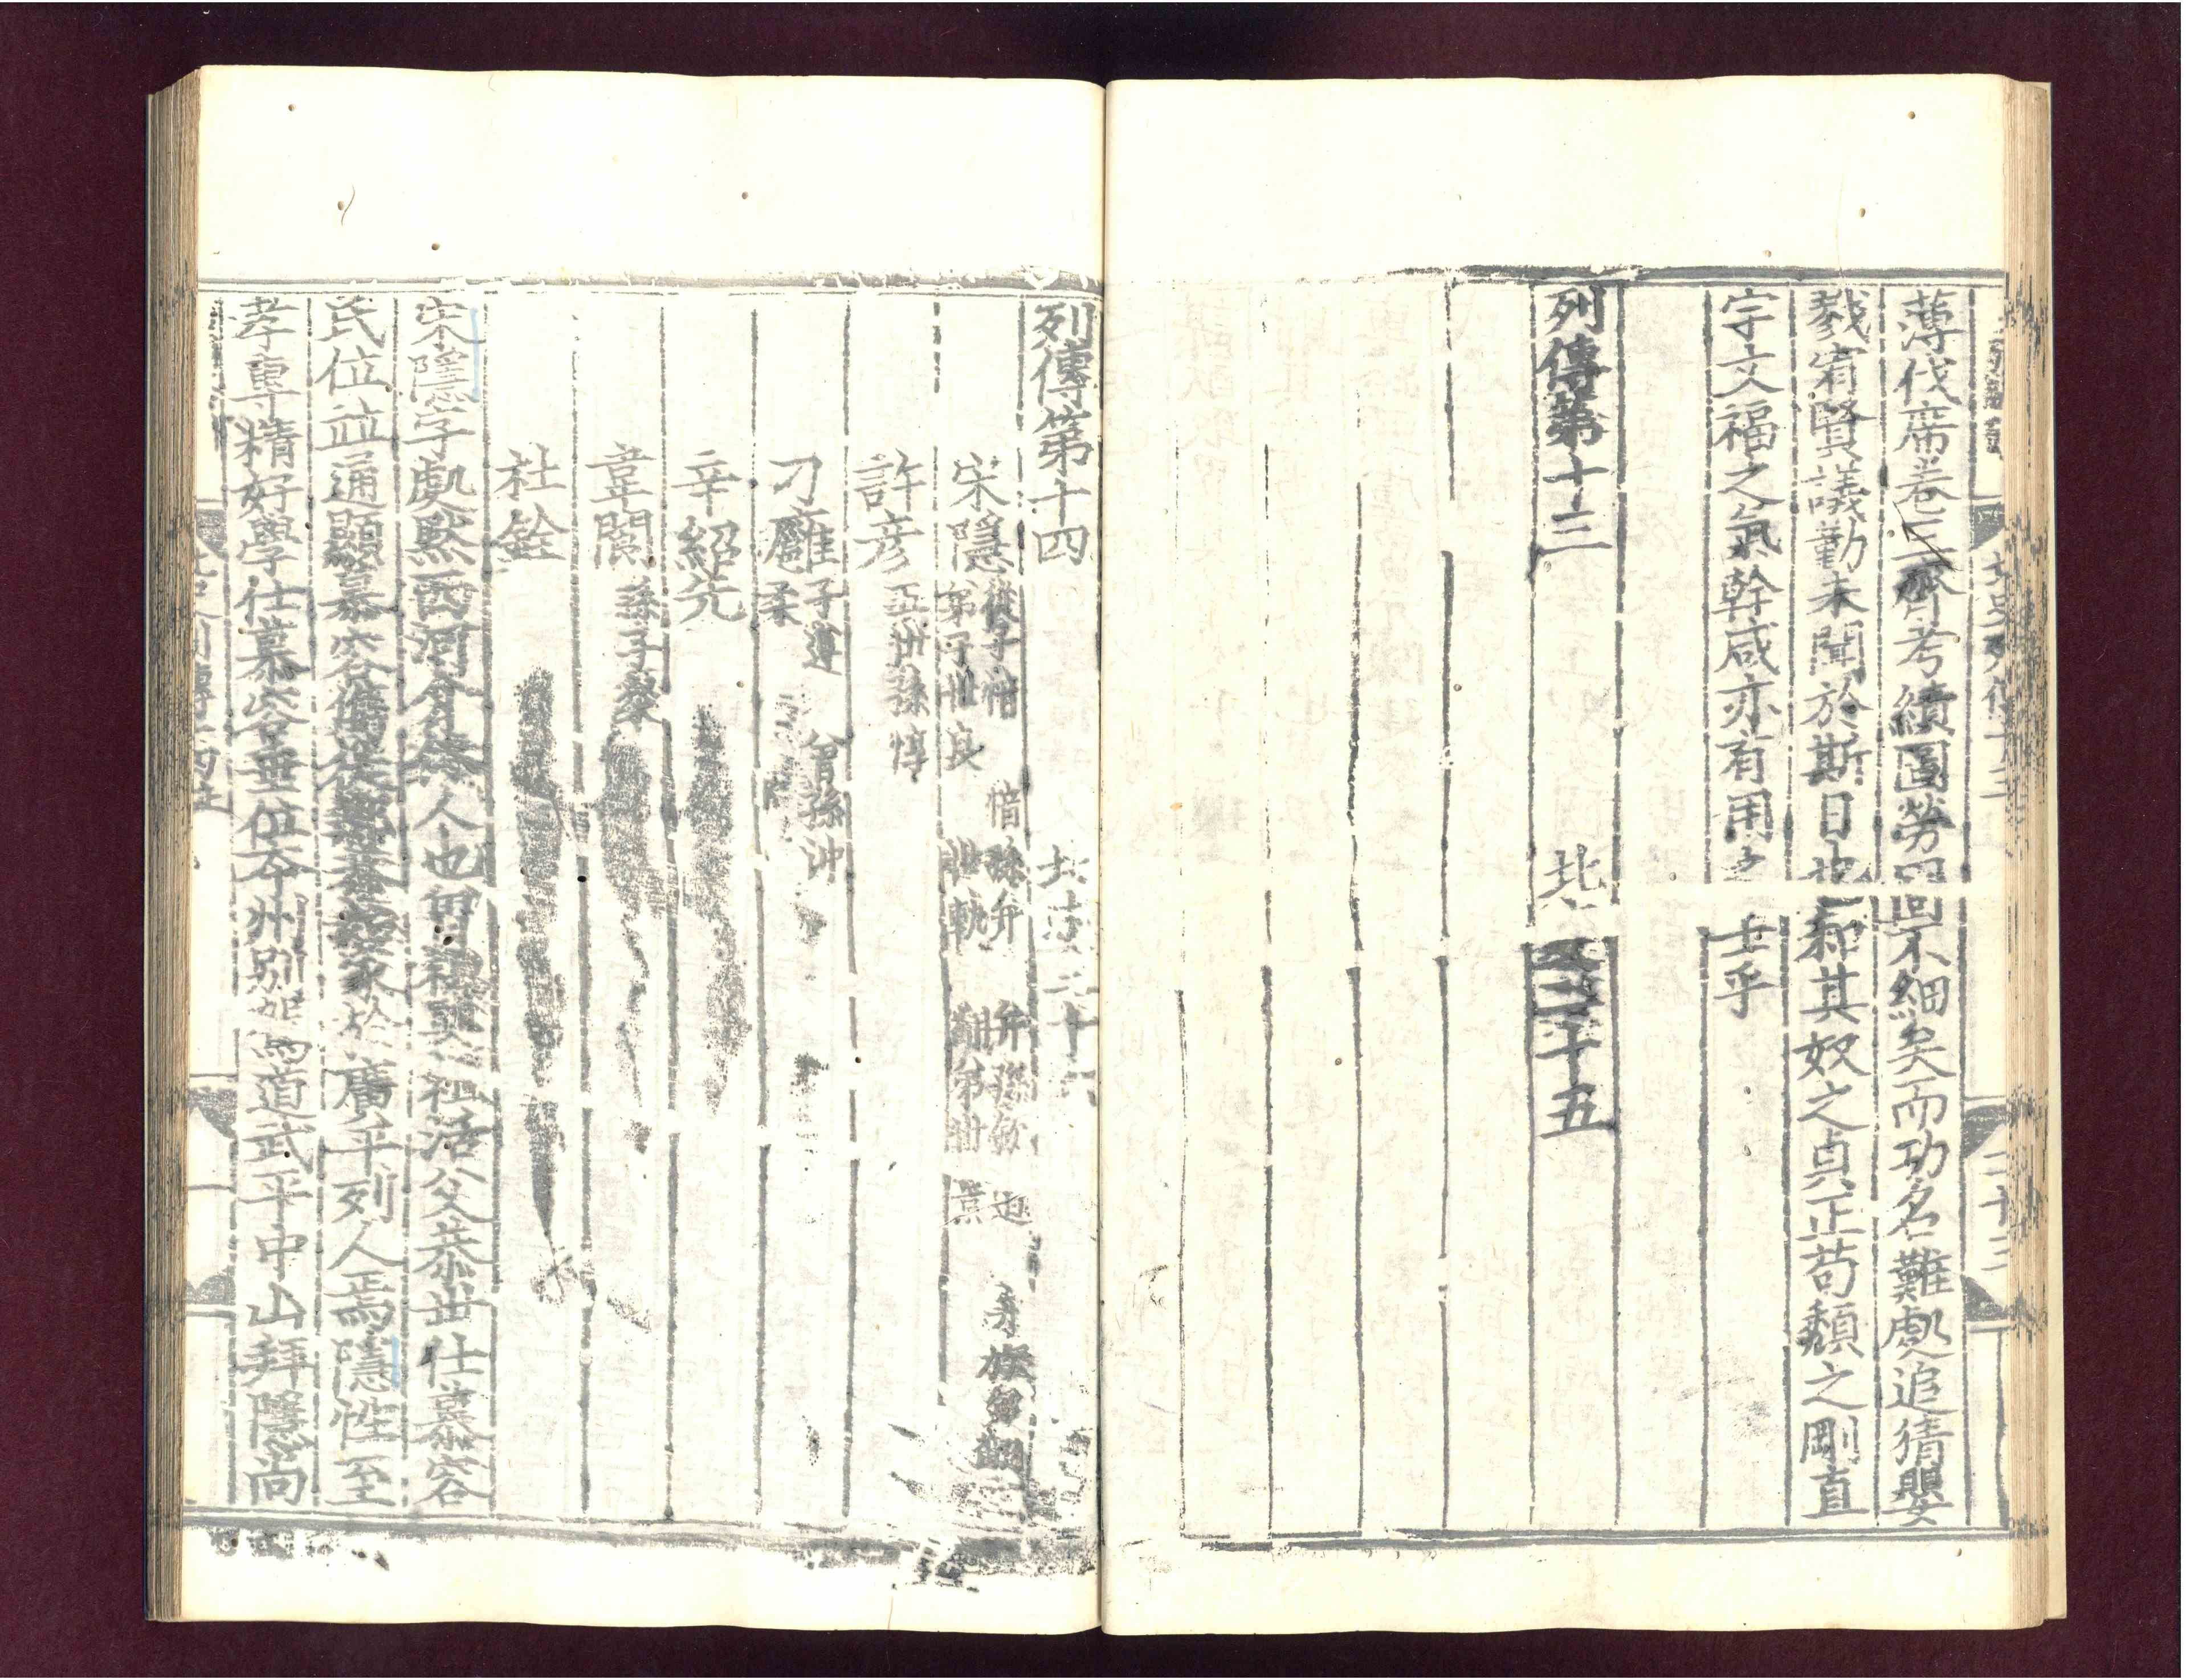 薄伐席卷三齊考績圖勞固不細矣而功名難處追猜嬰
戮宥賢議勤未聞於斯日也和其奴之貞正苟頹之剛直
宇文福之氣幹咸亦有用之士乎
列傳第十三 北史二十五
列傳第十四 北史二十六
宋隱 從子愔 愔孫弁 弁孫欽 迴 弁族弟翻
弟子世良 世軌 翻弟世 景
許彦 五世孫惇
刁雍 子遵 曾孫沖
柔
辛紹先
韋閬 孫子粲
杜銓
宋隱字處默西河介休人也曾祖奭祖活父恭世仕慕容
氏位並通顯慕容儁徙鄴恭始家於廣平列人焉隱性至
孝專精好學仕慕容垂位本州別駕道武平中山拜隱尚